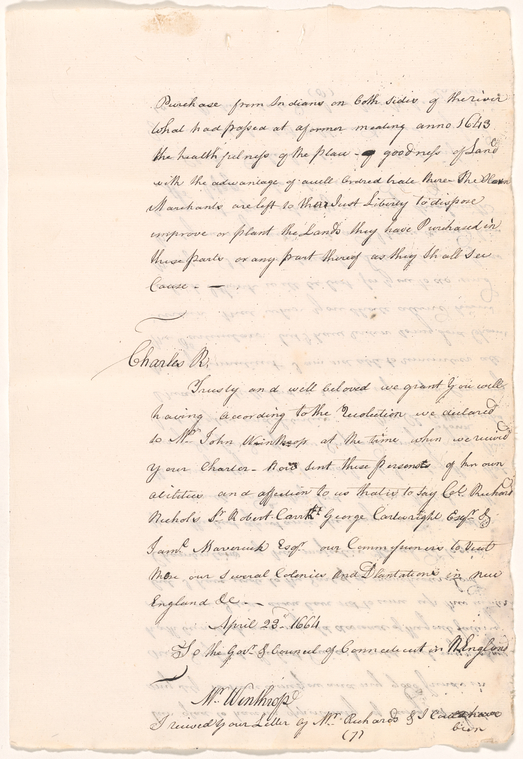 Purchase from Indians on both sides of the river
what had passed at a former meeting anno 1643
the healthfulness of the place - of goodness of Land
with the advantage of a well ordered trade there The
Marchants are left to their Just Liberty to dispose
improve or plant the Lands they have Purchased in
those parts or any part thereof as they Shall See
Cause. —
Charles R.
Trusty and well beloved we grant You well
having according to the Resolution we declared
to Mr. John Winthrop at the time when we reced
Your Charter - Now Sent these Persons of known
abilities and affection to us that is to Say Col. Richard
Nichols Sr. Robert Carr Kt. George Cartwright Esqr. &
Saml. Maverick Esqr. our Commissioners to Visit
our Several Colonies and Plantations in new
England &c. —
April 23d. 1664
To the Govr. & Council of Connecticut in N England
Mr. Winthrop
I reeived Your Letter by Mr. Richards & I Coud have
bien
(7)